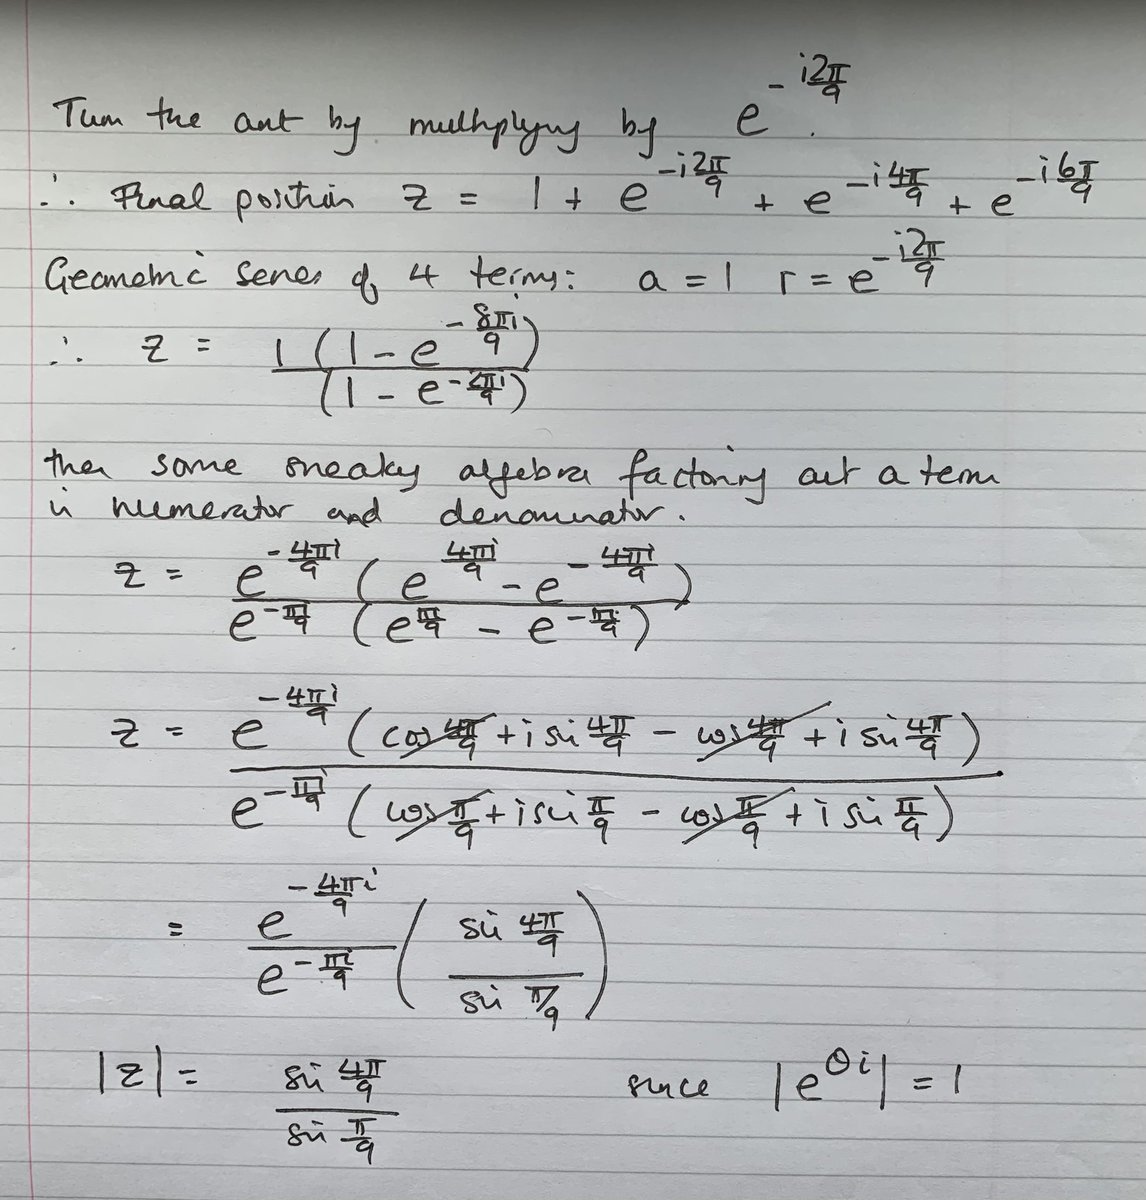 Turn the ant by multiplying by e^{-i2π/9}.
∴ Final position z = 1 + e^{-i2π/9} + e^{-i4π/9} + e^{-i6π/9}
Geometric series of 4 terms: a = 1 r = e^{-i2π/9}
∴ z = 1(1 - e^{-8πi/9}) / (1 - e^{-2πi/9})
then some sneaky algebra factoring out a term
in numerator and denominator.
z = e^{-4πi/9} (e^{4πi/9} - e^{-4πi/9}) / e^{-πi/9} (e^{πi/9} - e^{-πi/9})
z = e^{-4πi/9} (cos 4π/9 + i sin 4π/9 - cos 4π/9 + i sin 4π/9) / e^{-πi/9} (cos π/9 + i sin π/9 - cos π/9 + i sin π/9)
= e^{-4πi/9} / e^{-πi/9} (sin 4π/9 / sin π/9)
|z| = sin 4π/9 / sin π/9 since |e^{θi}| = 1